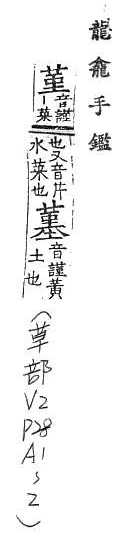 龍龕手鑑
也又音斤
菫音謹丨菜
水菜也墓音謹黃土也
(草部
V2
P28
A1
~
2)